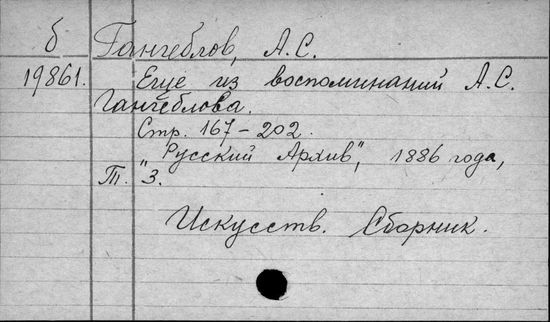 б Гангеблов, А.С.
19861. Еще из воспоминаний А.С.
Гангеблова.
Стр. 167-202.
"Русский Архив", 1886 года,
Т. 3.
Искусств. Сборник.